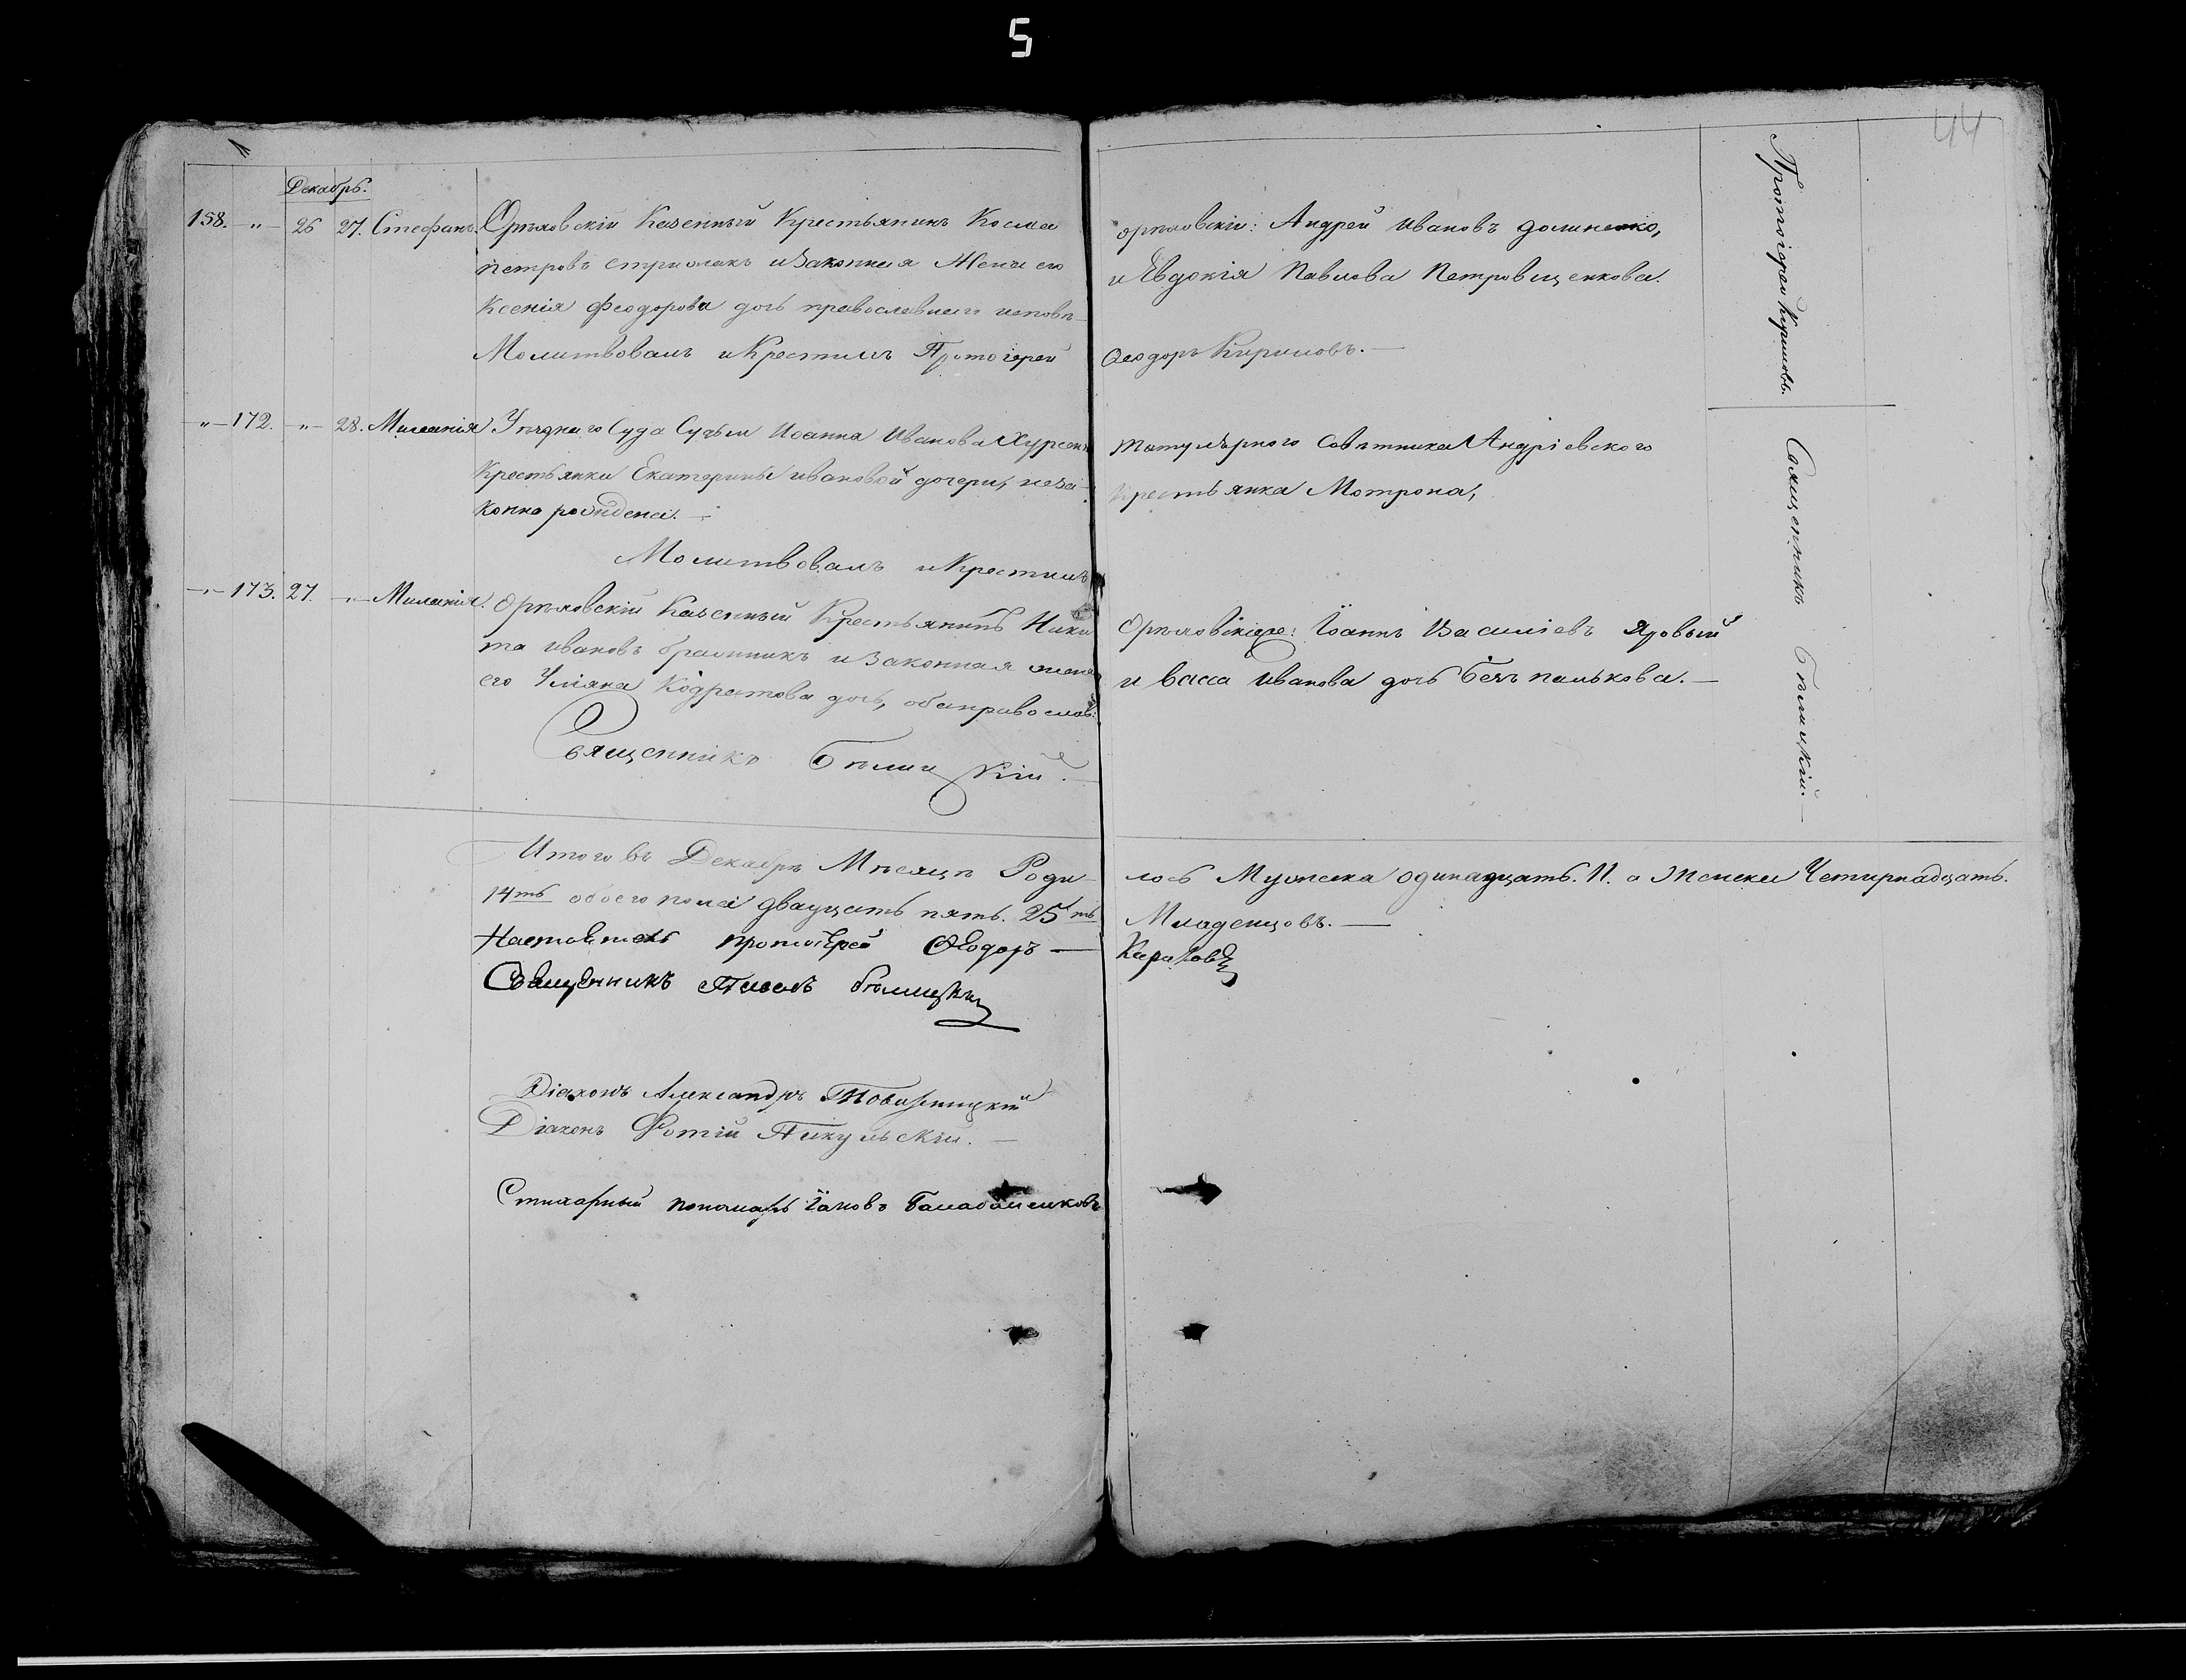 5
44
Декабрь.
158. „ 26 27. Стефанъ. Орѣховскій Казенный Крестьянинъ Косма
Петровъ стриолакъ и Законная Жена его
Ксенія Феодорова дочь православнаго исповѣ-
Молитвовалъ и Крестилъ Протоіерей
орѣховскіи: Андрей Ивановъ долиненко,
и Евдокія Павлова Петровщенкова.
Ѳеодоръ Кириловъ.
Протоіерей Кириловъ.
„ 172. „ 28. Миланія Уѣзднаго Суда Судьи Иоанна Иванова
Крестьянки Екатерины ивановой дочери, неза-
конно рождена.
Молитвовалъ и Крестилъ
Титулярного Совѣтника Андріевского
Крестьянка Мотрона,
Священникъ Бѣлицкій.
„ 173. 27. „ Миланія. Орѣховскій Казенный Крестьянинъ Ники
та Ивановъ и Законная жена
его Уліяна Кодратова дочь, оба православ:
Священникъ Бѣлицкій.
Орѣховскіе: Іоаннъ Василіевъ Яровый
и Васса Иванова дочь Безпалькова.
Итого въ Декабрѣ Мѣсяцѣ Роди-
лось Мужеска одинадцать. 11. а Женска Четирнадцать.
14ть обоего пола двадцать пять. 25ть
Младенцовъ.
Настоятель протоіерей Ѳеодоръ
Кириловъ
Священникъ Павелъ Бѣлицкій
Діаконъ Александръ
Діаконъ Фотій Пикульскій.
Стихарный пономарь Іаковъ